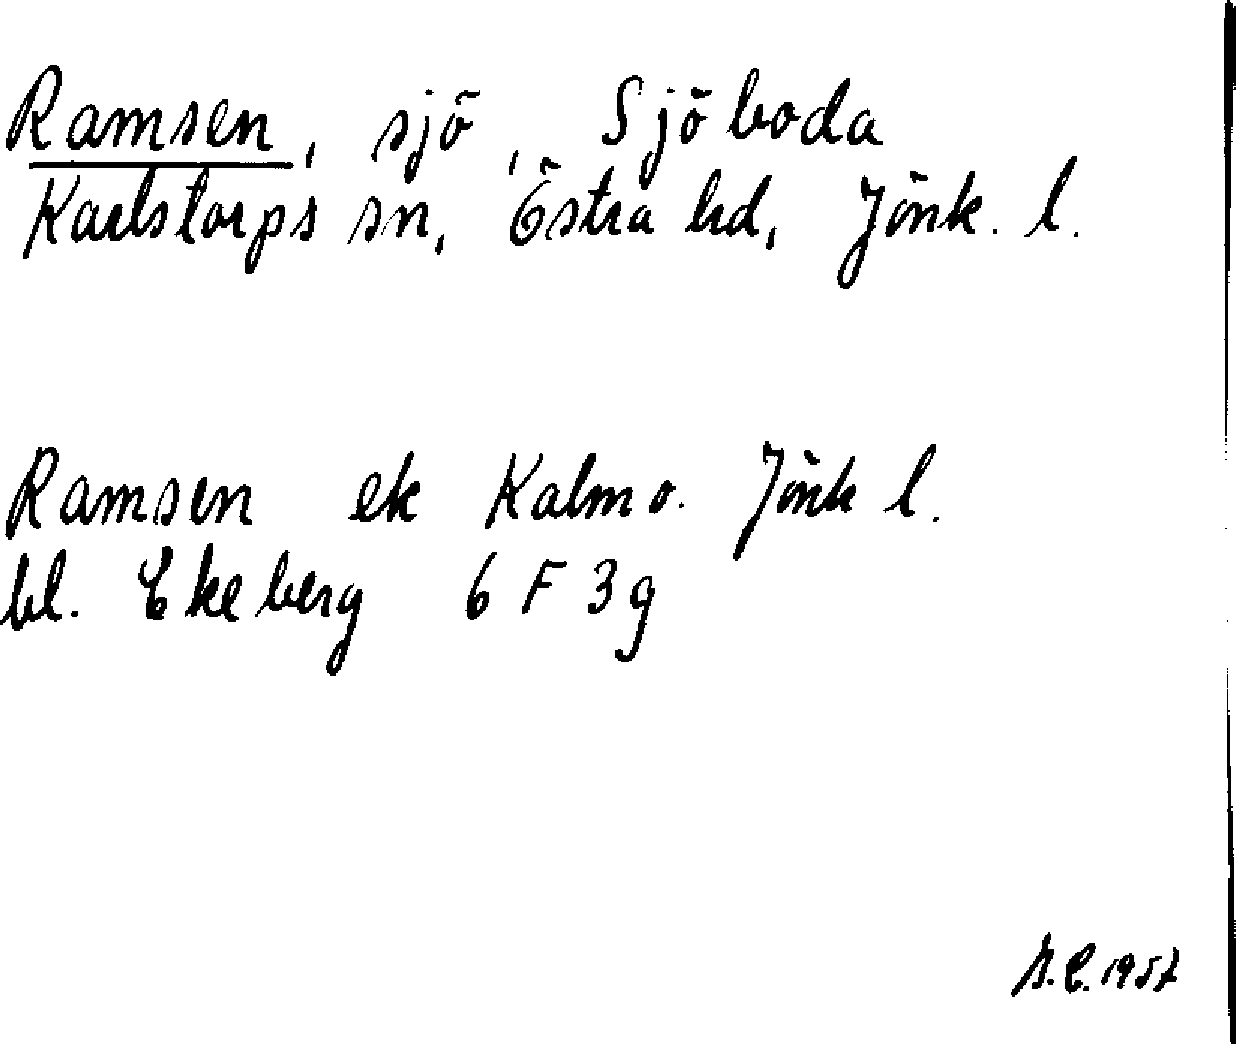 Ramsen, sjö, Sjöboda
Karlstorps sn, Östra hd, Jönk. l.
Ramsen ek Kalm o. Jönk l.
bl. Ekeberg 6 F 3g
1957